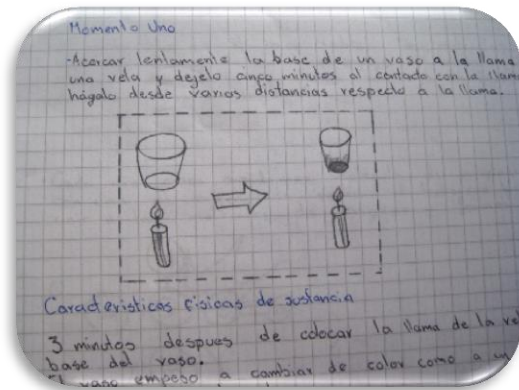 Momento Uno
-Acercar lentamente la base de un vaso a la llama
una vela y dejelo cinco minutos al contacto con la llam
hágalo desde varias distancias respecto a la llama.
Caracteristicas fisicas de sustancia
3 minutos despues de colocar la llama de la ve
base del vaso.
El vaso empeso a cambiar de color como a